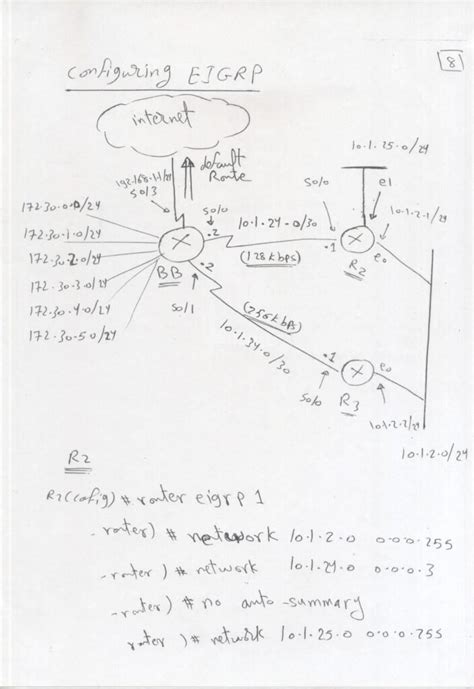 8
Configuring EIGRP
internet
default
Route
192.168.1.1/24
s0/3
10.1.25.0/24
172.30.0.0/24
172.30.1.0/24
172.30.2.0/24
172.30.3.0/24
172.30.4.0/24
172.30.5.0/24
s0/0
.2
10.1.24.0/30
(128kbps)
s0/0
e1
10.1.2.1/24
.1
R2
e0
BB
.2
s0/1
(256kbps)
10.1.34.0/30
.1
s0/0
R3
e0
10.1.2.2/24
10.1.2.0/24
R2
R2(config)# router eigrp 1
-router)# network 10.1.2.0 0.0.0.255
-router)# network 10.1.24.0 0.0.0.3
-router)# no auto-summary
router)# network 10.1.25.0 0.0.0.255